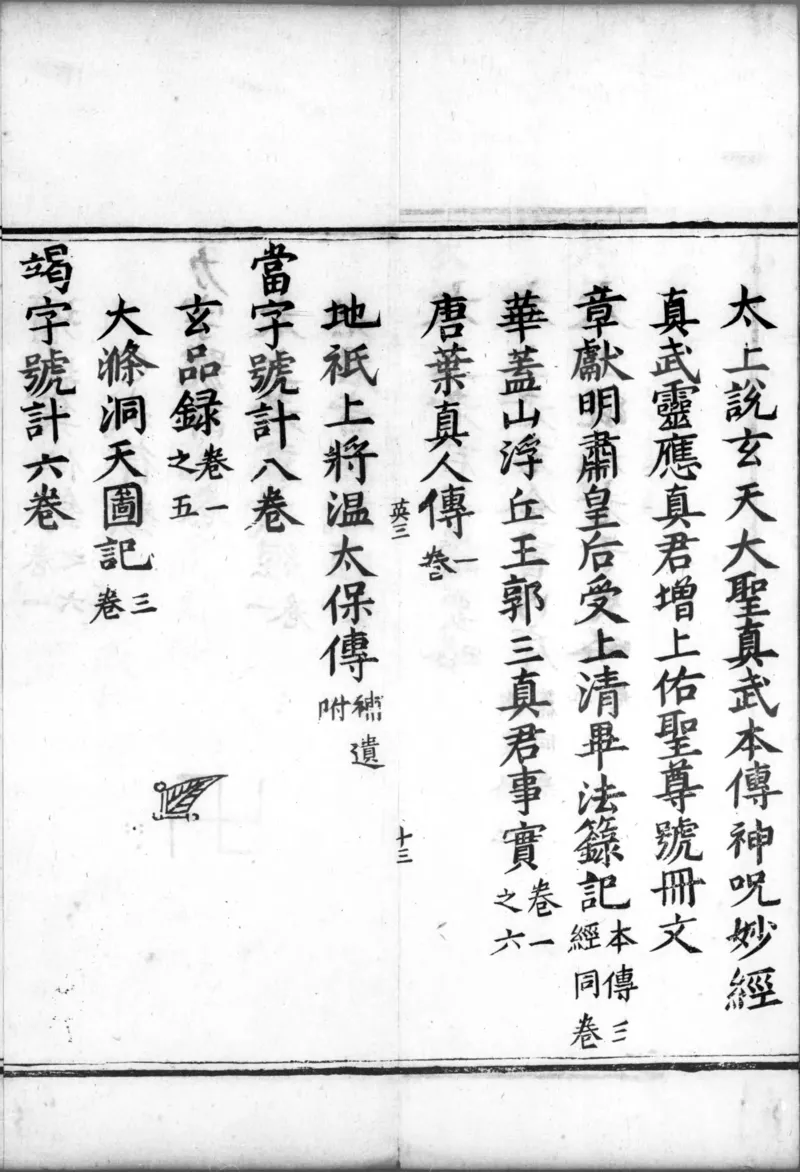 太上說玄天大聖真武本傳神呪妙經
真武靈應真君增上佑聖尊號冊文
章獻明肅皇后受上清畢法籙記 本傳三經同卷
華蓋山浮丘王郭三真君事實 卷一之六
唐葉真人傳 一卷
英三
十三
地祇上將温太保傳 補遺附
當字號計八卷
玄品録 卷一之五
大滌洞天圖記 三卷
竭字號計六卷